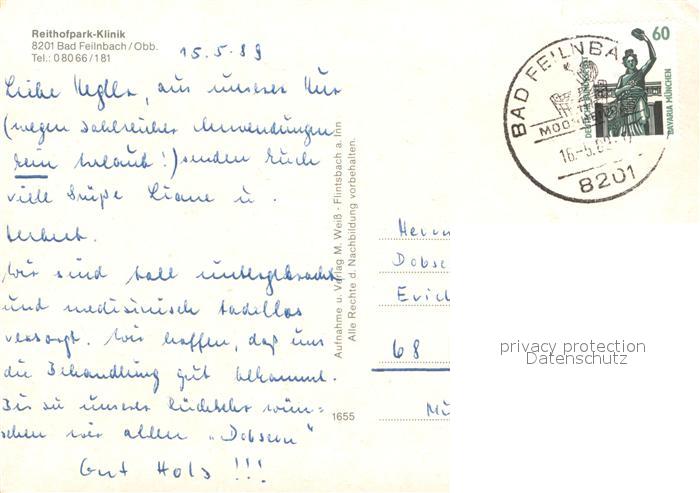 Reithofpark-Klinik
8201 Bad Feilnbach/Obb.
Tel.: 0 80 66 / 181
15.5.89
Liebe, aus unserer Kur
(wegen zahlreicher Anwendungen
kein Urlaub!) senden Euch
viele Grüße Liane u.
Herbert.
Wir sind toll untergebracht
und medizinisch tadellos
versorgt. Wir hoffen, daß uns
die Behandlung gut bekommt.
Bis zu unserer Rückkehr wün=
schen wir allen „Dobsern"
Gut Holz !!!
Aufnahme u. Verlag M. Weiß · Flintsbach a. Inn
Alle Rechte d. Nachbildung vorbehalten.
1655
BAD FEILNBA
MOO
16.-5.89
8201
60
DEUTSCHE BUNDESPOST
BAVARIA MÜNCHEN
Herrn
Dobse
Erich
68
Mü
privacy protection
Datenschutz